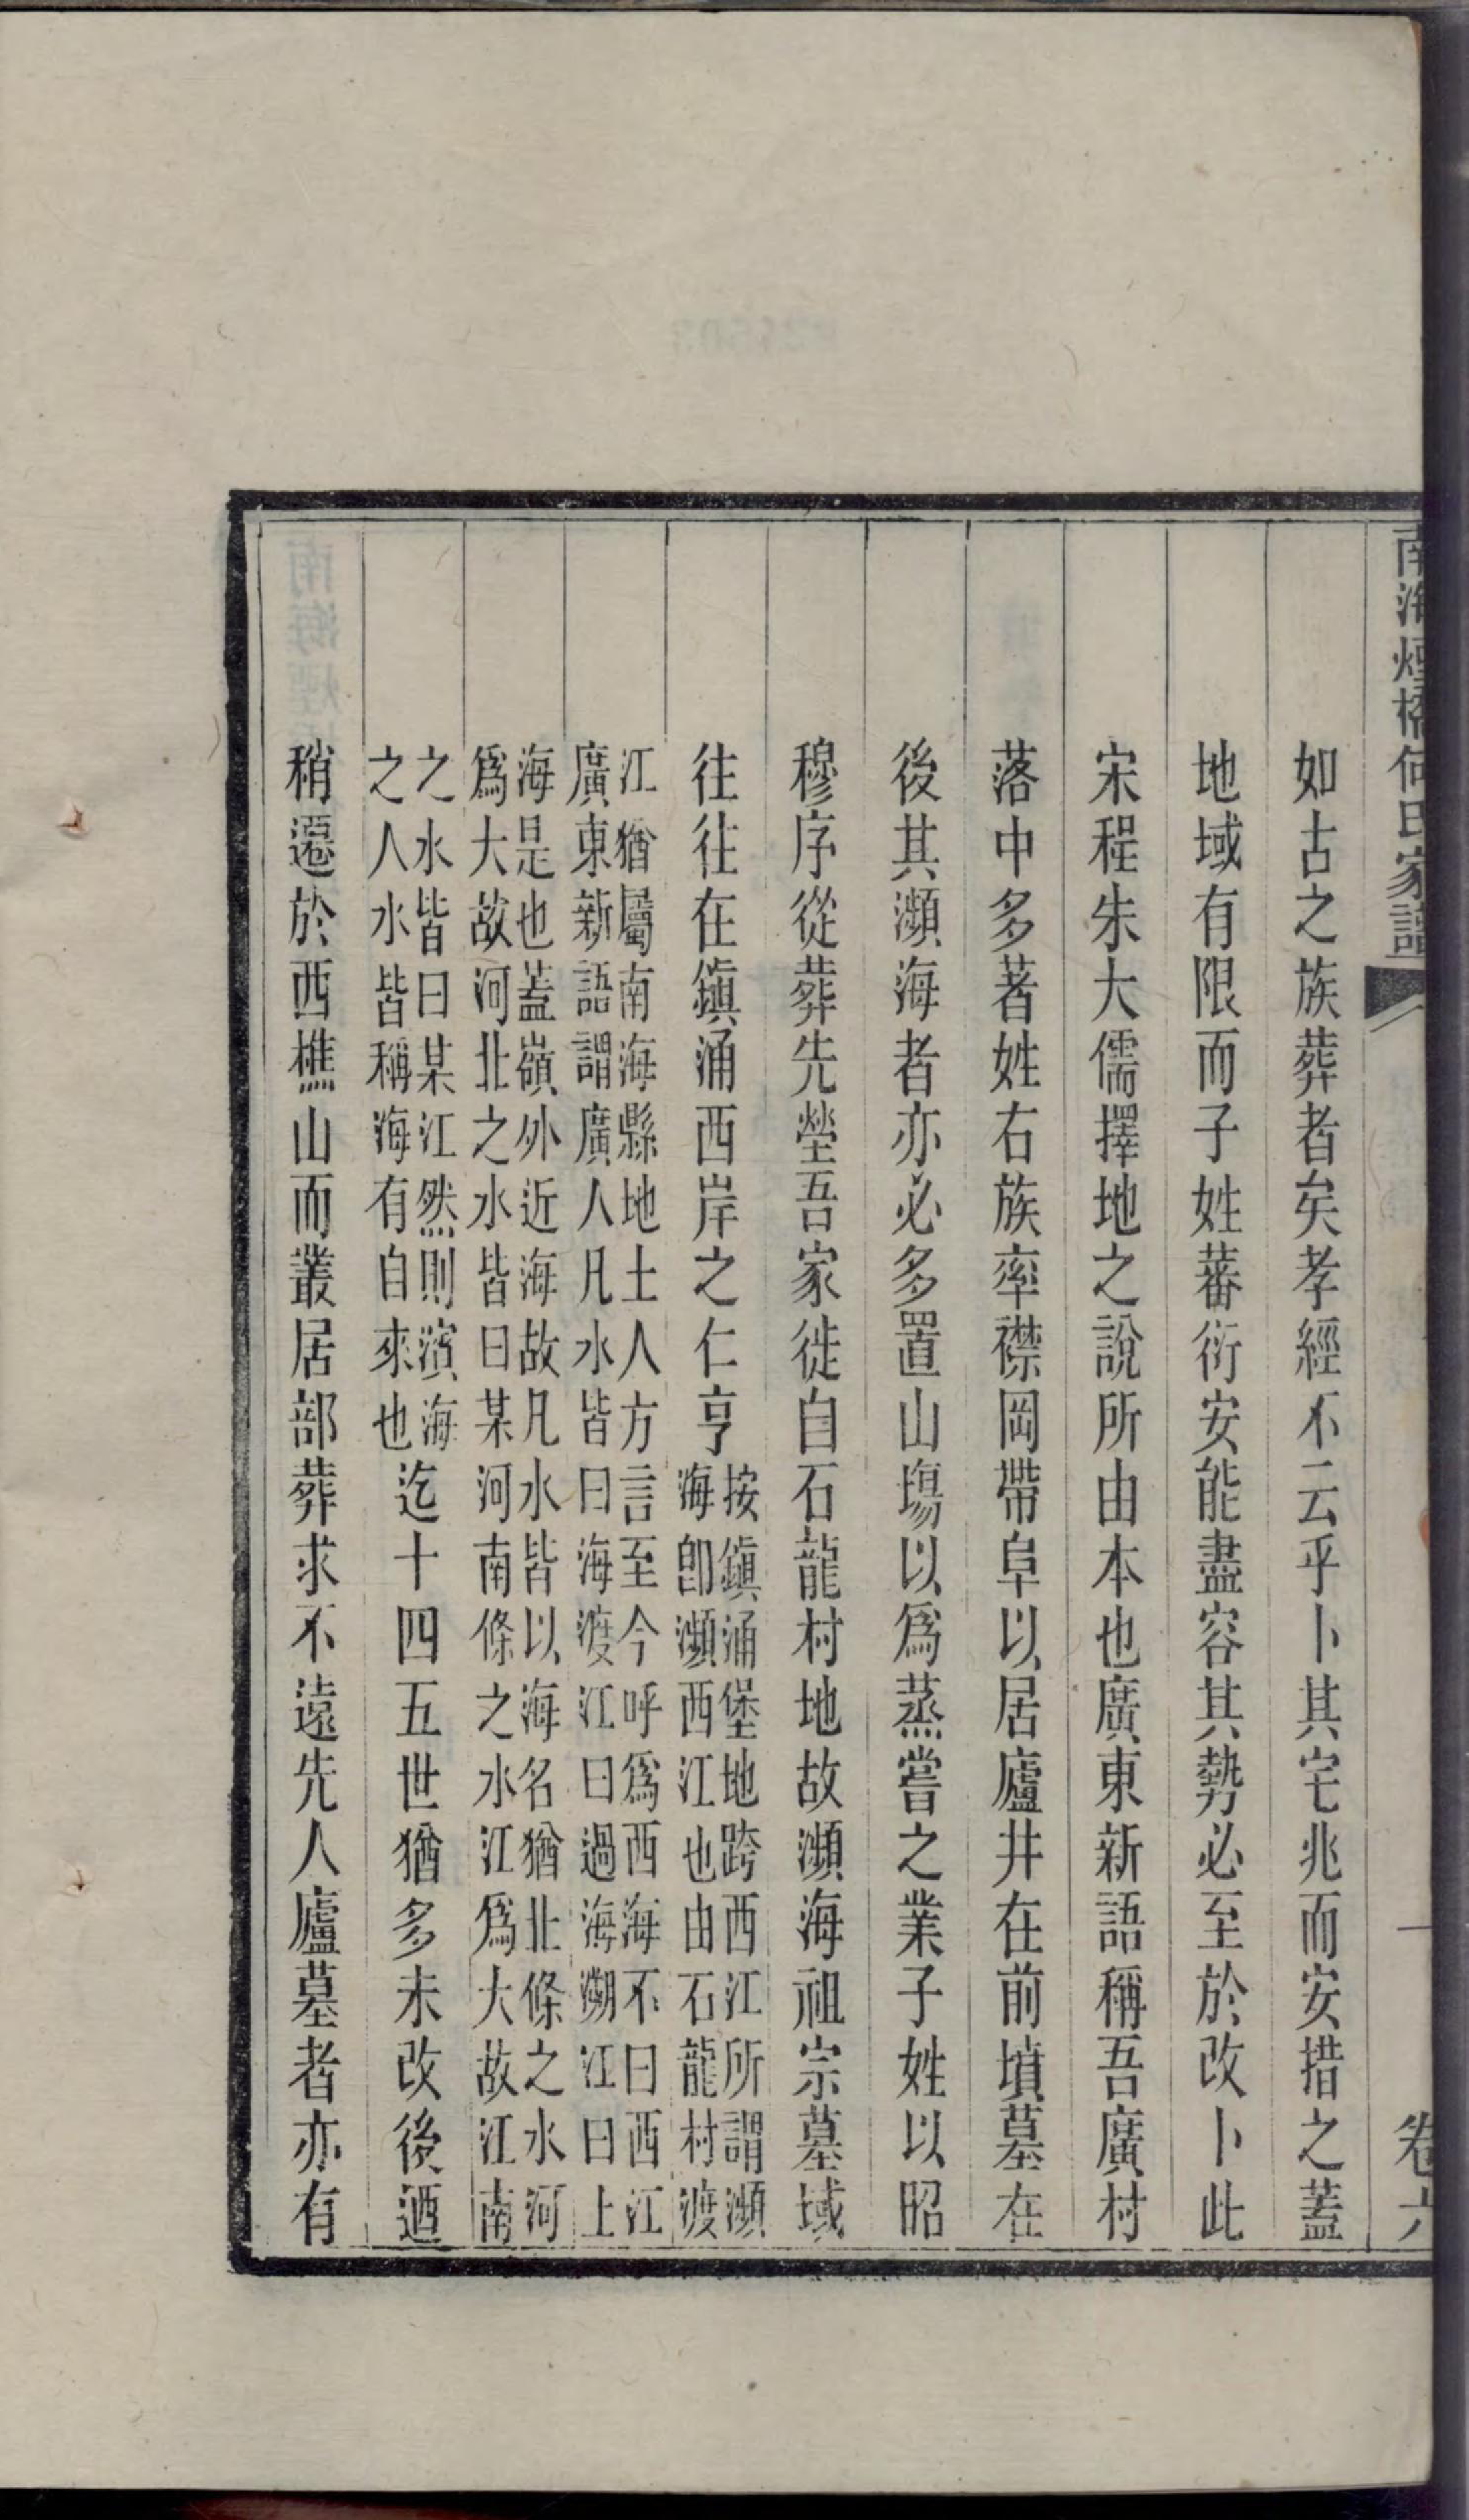 南海煙橋何氏家譜　卷六
如古之族葬者矣孝經不云乎卜其宅兆而安措之蓋
地域有限而子姓蕃衍安能盡容其勢必至於改卜此
宋程朱大儒擇地之說所由本也廣東新語稱吾廣村
落中多著姓右族率襟岡帶阜以居廬井在前墳墓在
後其瀕海者亦必多置山塲以爲蒸嘗之業子姓以昭
穆序從葬先塋吾家徙自石龍村地故瀕海祖宗墓域
往往在鎭涌西岸之仁亨
按鎭涌堡地跨西江所謂瀕
海卽瀕西江也由石龍村渡
江猶屬南海縣地土人方言至今呼爲西海不曰西江
廣東新語謂廣人凡水皆曰海渡江曰過海溯江曰上
海是也蓋嶺外近海故凡水皆以海名猶北條之水河
爲大故河北之水皆曰某河南條之水江爲大故江南
之水皆曰某江然則濱海
之人水皆稱海有自來也
迄十四五世猶多未改後迺
稍遷於西樵山而叢居部葬求不遠先人廬墓者亦有